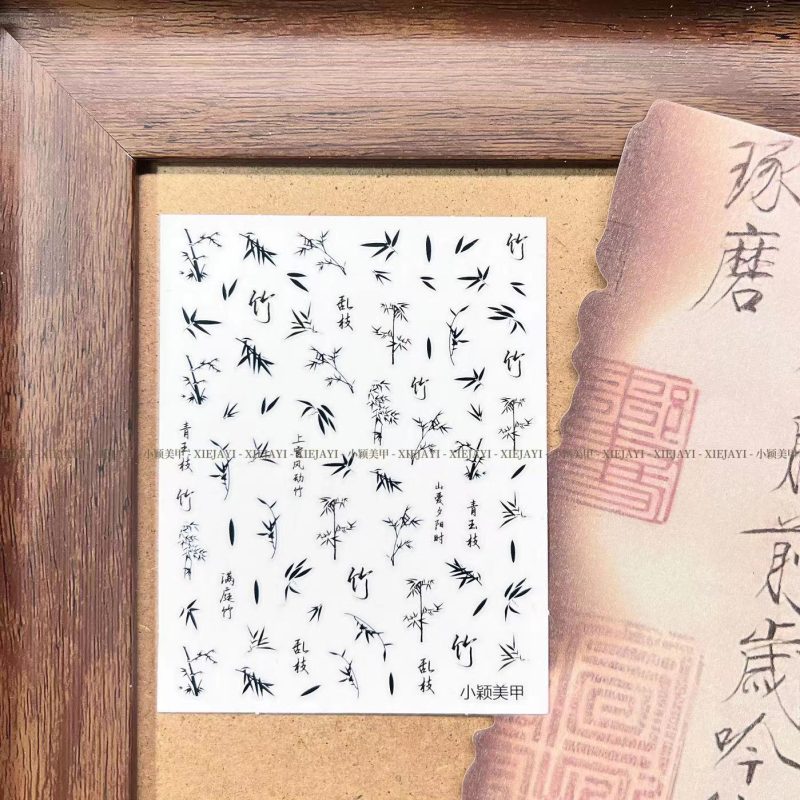 竹
竹
乱枝
竹
竹
青玉枝
上震风动竹
竹
山爱夕阳时
青玉枝
满庭竹
竹
乱枝
竹
乱枝
小颖美甲
XIEJAYI - 小颖美甲 - XIEJAYI - XIEJAYI - 小颖美甲 - XIEJAYI - XIEJAYI - XIEJAYI - 小颖美甲
琢磨
前歲吟